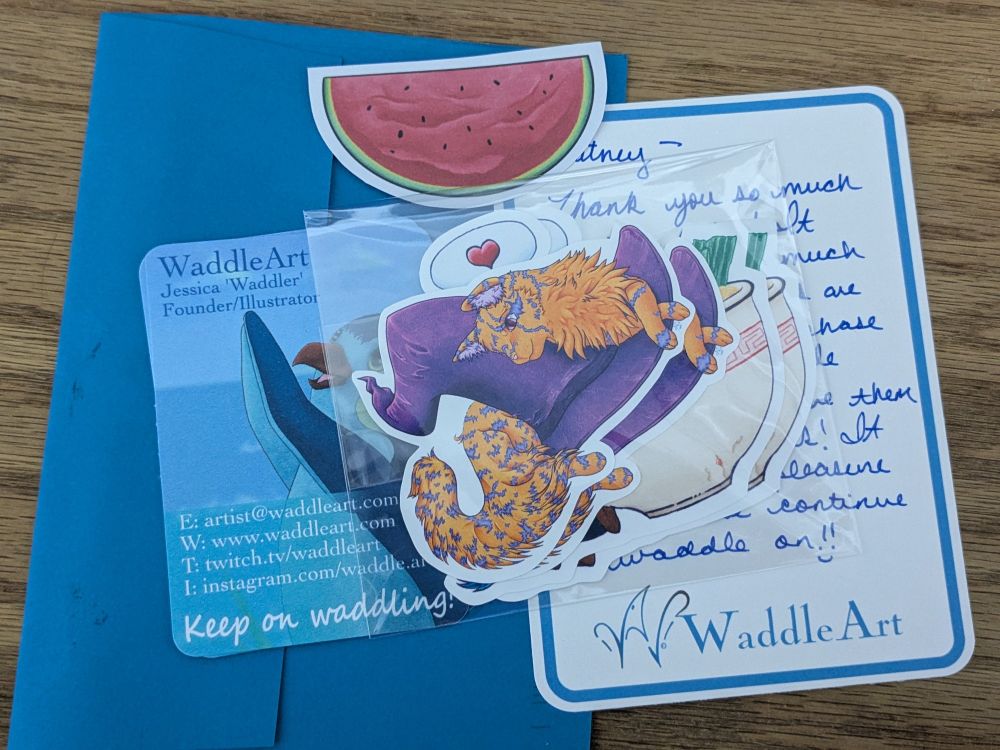 WaddleArt
Jessica 'Waddler'
Founder/Illustrator
E: artist@waddleart.com
W: www.waddleart.com
T: twitch.tv/waddleart
I: instagram.com/waddle.ar
Keep on waddling!
itney -
Thank you so much
It
much
are
chase
them
s! It
leasure
continue
waddle on!!
WaddleArt